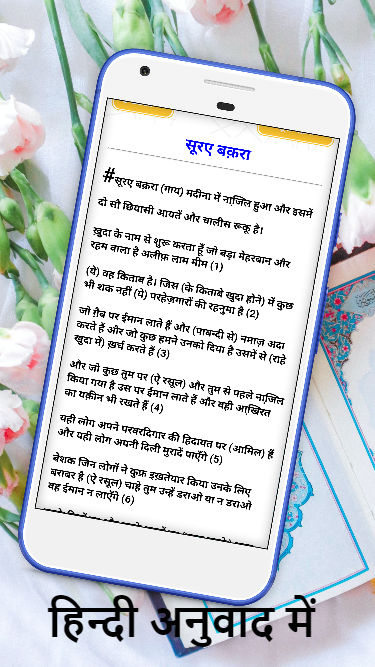 सूरए बक़रा
#सूरए बक़रा (गाय) मदीना में नाज़िल हुआ और इसमें
दो सौ छियासी आयतें और चालीस रूकू है।
ख़ुदा के नाम से शुरू करता हूँ जो बड़ा मेहरबान और
रहम वाला है अलीफ़ लाम मीम (1)
(ये) वह किताब है। जिस (के किताबे खुदा होने) में कुछ
भी शक नहीं (ये) परहेज़गारों की रहनुमा है (2)
जो ग़ैब पर ईमान लाते हैं और (पाबन्दी से) नमाज़ अदा
करते हैं और जो कुछ हमने उनको दिया है उसमें से (राहे
खुदा में) ख़र्च करते हैं (3)
और जो कुछ तुम पर (ऐ रसूल) और तुम से पहले नाज़िल
किया गया है उस पर ईमान लाते हैं और वही आख़िरत
का यक़ीन भी रखते हैं (4)
यही लोग अपने परवरदिगार की हिदायत पर (आमिल) हैं
और यही लोग अपनी दिली मुरादें पाएँगे (5)
बेशक जिन लोगों ने कुफ़्र इख़तेयार किया उनके लिए
बराबर है (ऐ रसूल) चाहे तुम उन्हें डराओ या न डराओ
वह ईमान न लाएँगे (6)
हिन्दी अनुवाद में